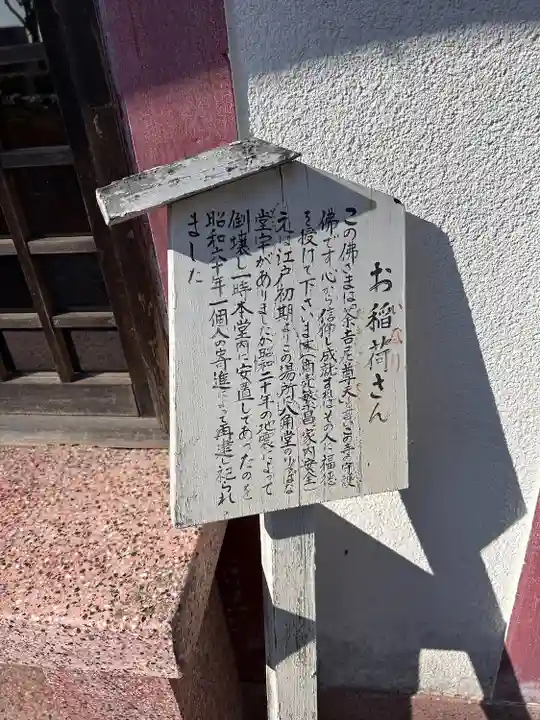 お稲荷さん
この佛さまは「荼吉尼尊天」と言いこの寺の守護
佛で才心から信仰し成就すればその人に福徳
を授けて下さいます（商売繁昌家内安全）
元は江戸初期よりこの場所に八角堂のりっぱな
堂宇がありましたが昭和二十年の地震によって
倒壊し一時本堂内に安置してあったのを
昭和六十年一個人の寄進によって再建し祀られ
ました